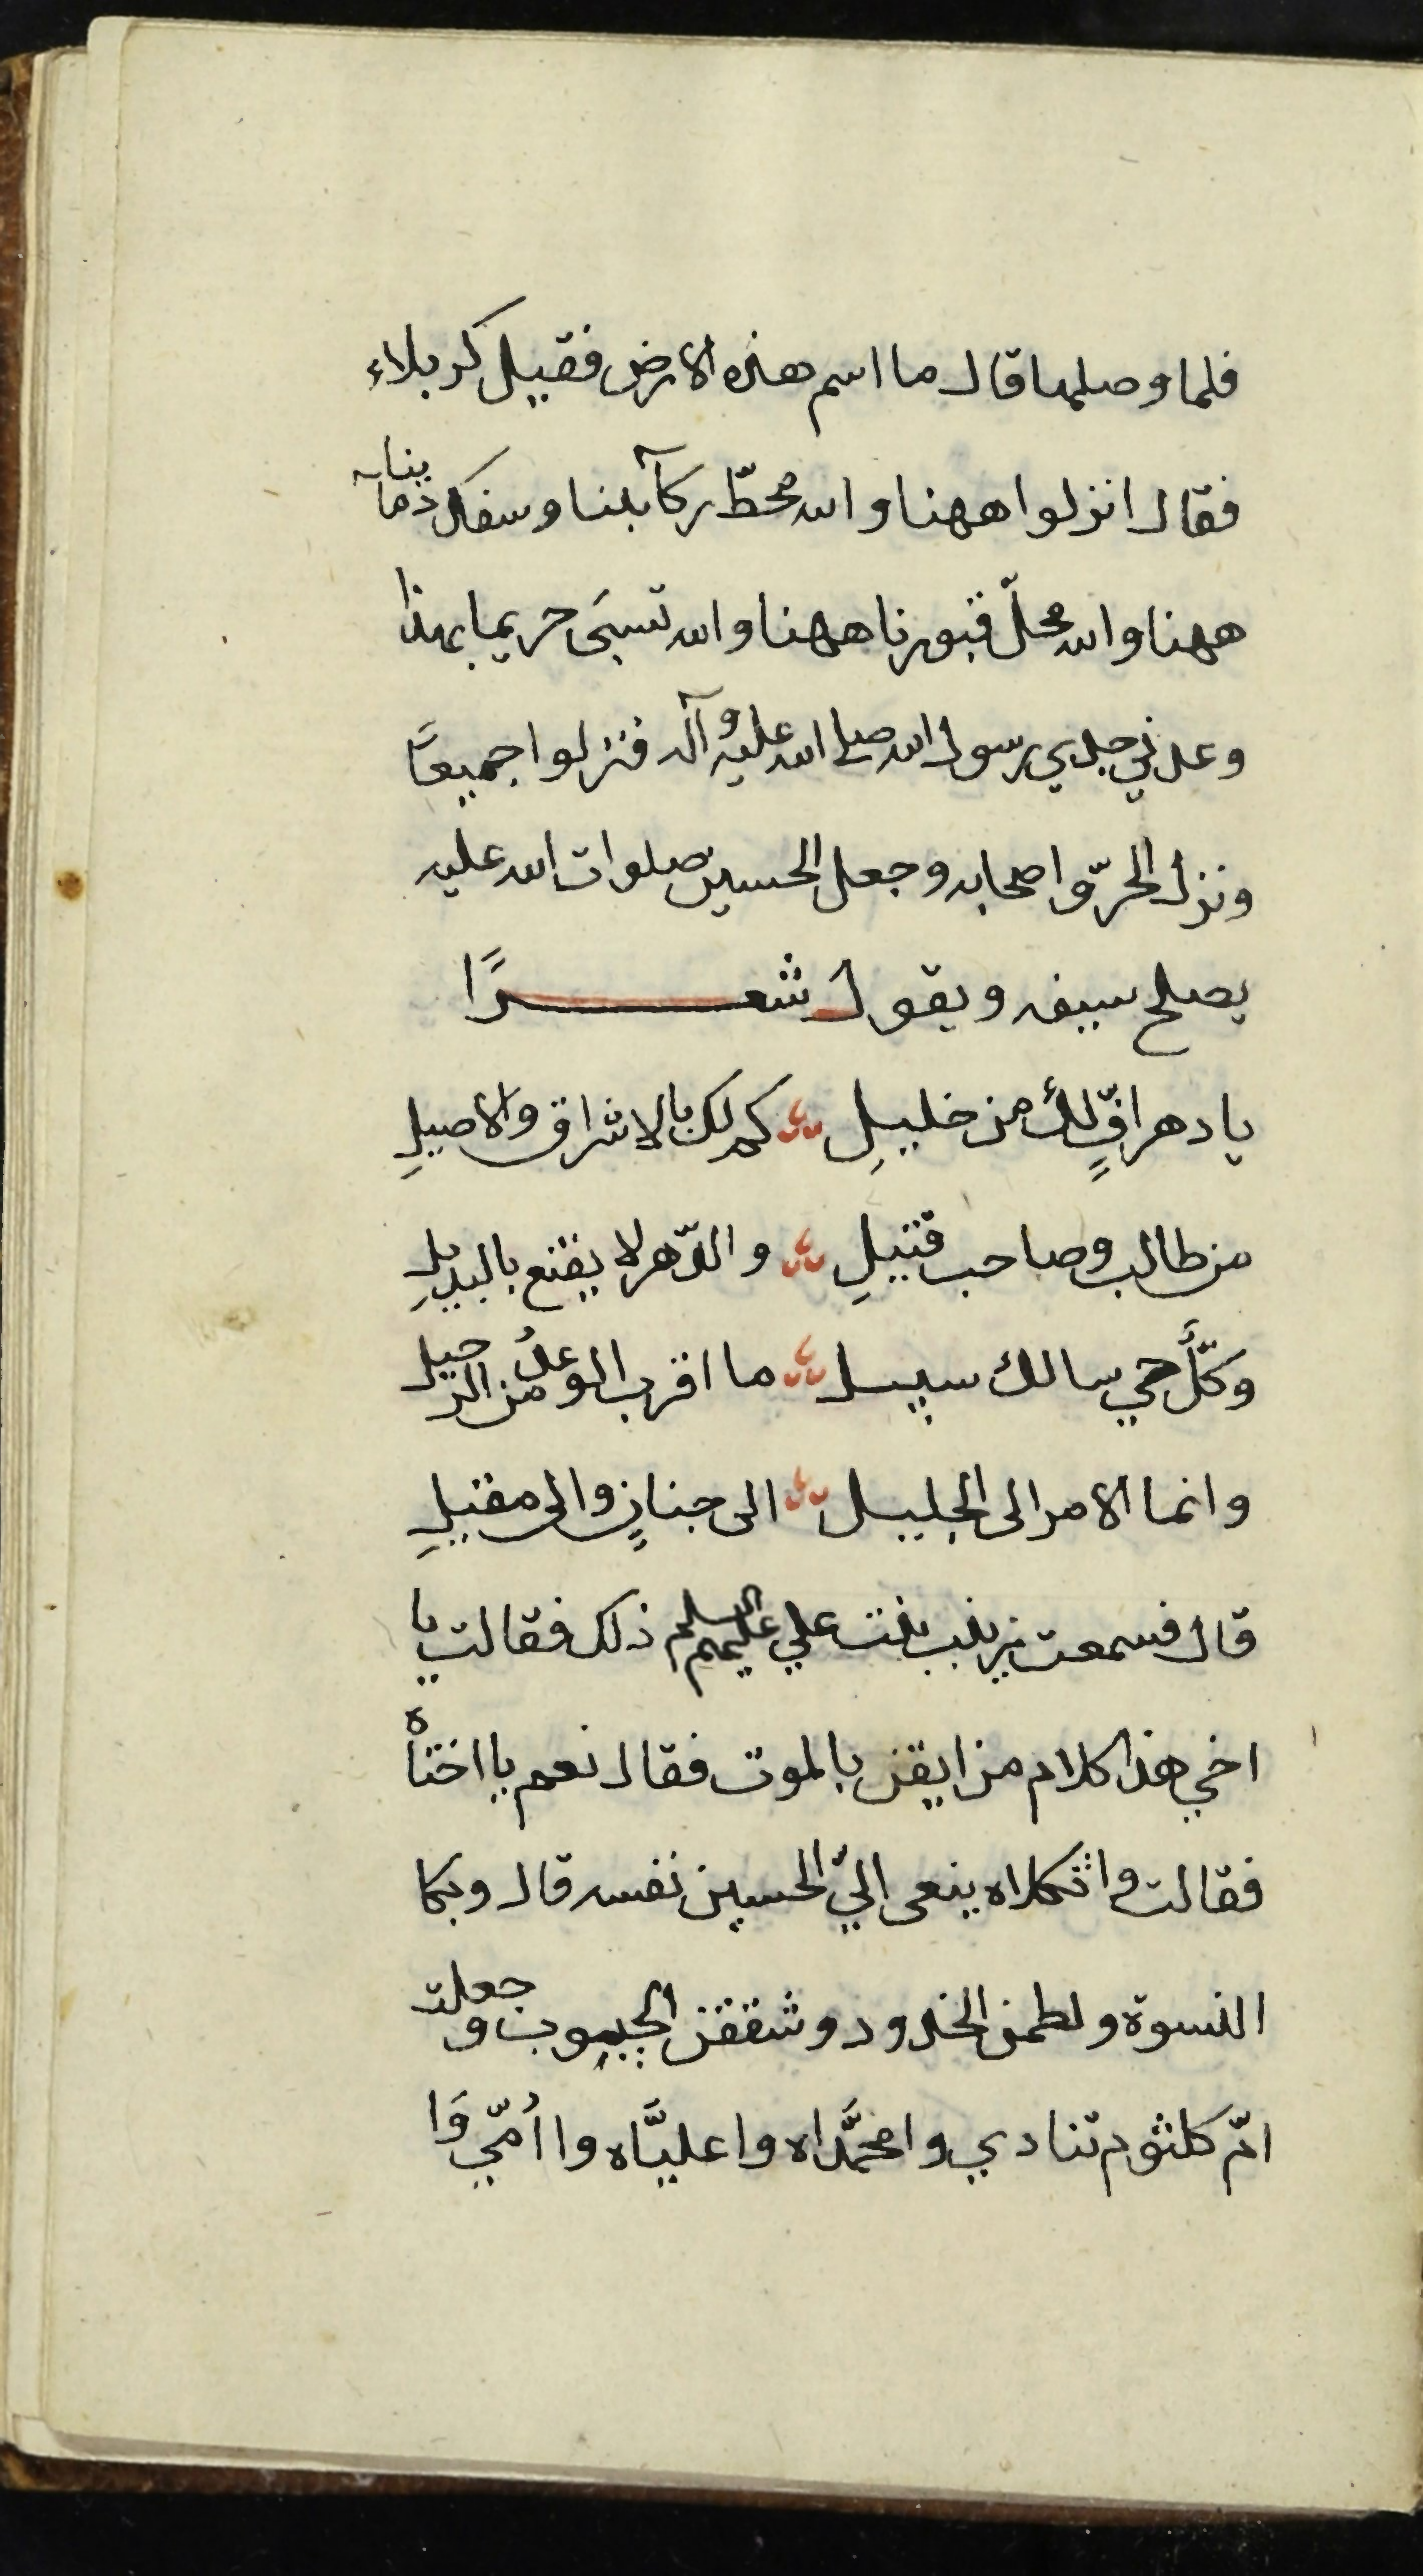 فلما وصلها قال ما اسم هذه الارض فقيل كربلاء
فقال انزلوا ههنا والله محطّ ركآبنا وسفك دمآينا
ههنا والله محلّ قبورنا ههنا والله تسبَى حريمنا بهذا
وعدني جدي رسول الله صلى الله عليه وآله فنزلوا جميعًا
ونزل الحرّ واصحابه وجعل الحسين صلوات الله عليه
يصلح سيفه ويقول شعرًا
يا دهر افٍّ لك من خليلِ كم لك بالاشراق والاصيلِ
من طالب وصاحب قتيلِ والدّهر لا يقنع بالبديلِ
وكلُّ حي سالك سبيل ما اقرب الوعدُ من الرحيل
وانما الامر الى الجليل الى جنانٍ والى مقيلِ
قال فسمعت زينب بنت علي عليهم السلم ذلك فقالت يا
اخي هذا كلام من ايقن بالموت فقال نعم يا اختاه
فقالت واثكلاه ينعى اليّ الحسين نفسه قال وبكا
النسوة ولطمن الخدود وشققن الجيوب وجعلت
امّ كلثوم تنادي وا محمَّداه وا عليَّاه وا أمّي وَا